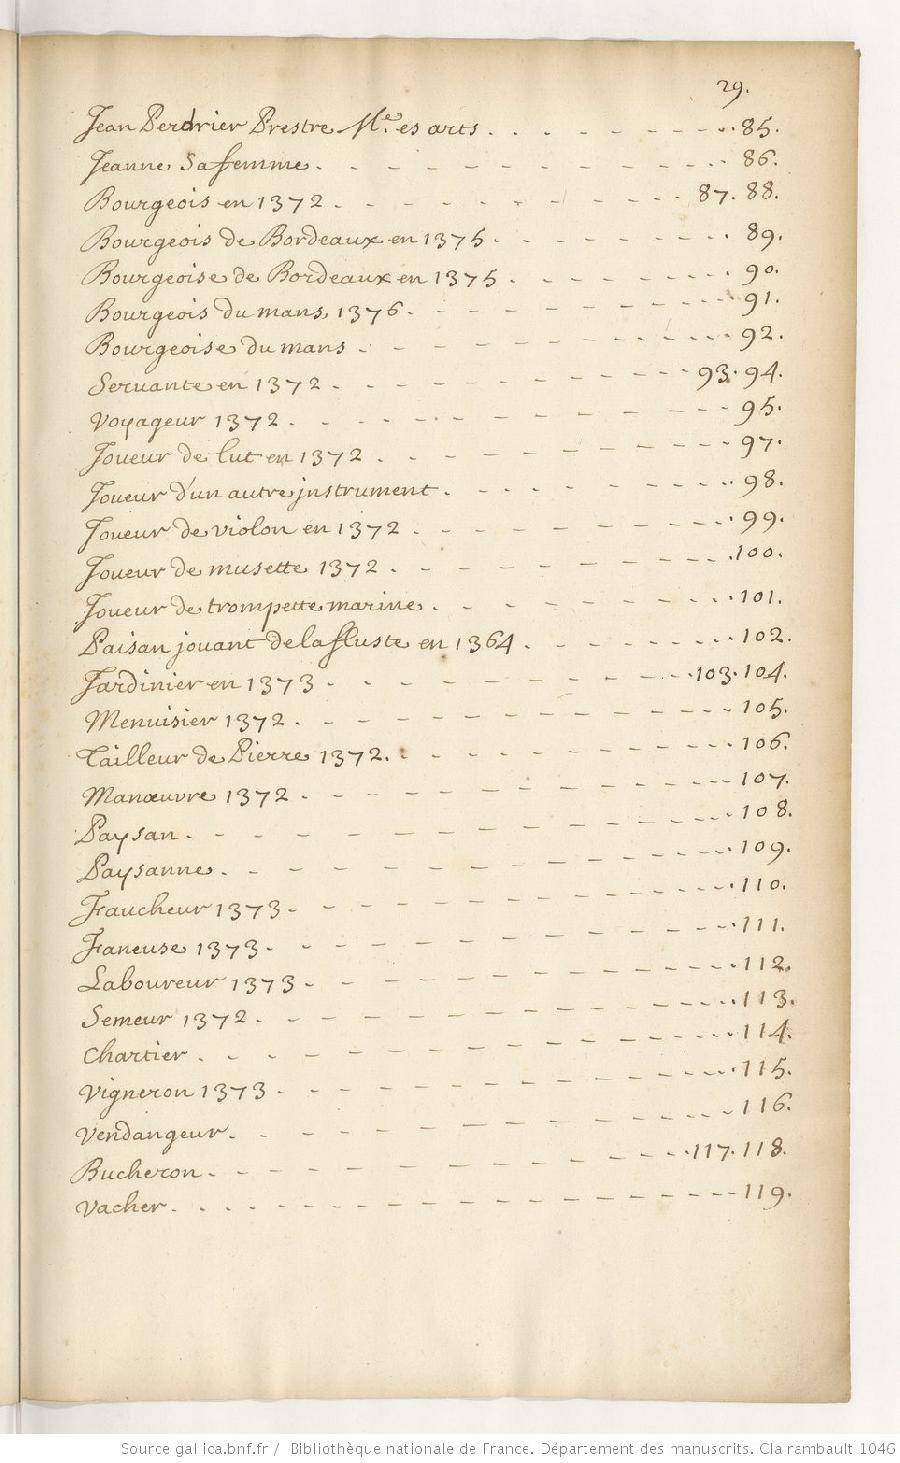 29.
Jean Perdrier Prestre Me. es arts. 85.
Jeanne Sa femme. 86.
Bourgeois en 1372. 87. 88.
Bourgeois de Bordeaux en 1375. 89.
Bourgeoise de Bordeaux en 1375. 90.
Bourgeois du mans, 1376. 91.
Bourgeoise du mans. 92.
Servante en 1372. 93. 94.
Voyageur 1372. 95.
Joueur de lut en 1372. 97.
Joueur d'un autre jnstrument. 98.
Joueur de violon en 1372. 99.
Joueur de musette 1372. 100.
Joueur de trompette marine. 101.
Paisan jouant de la fluste en 1364. 102.
Jardinier en 1373. 103. 104.
Menuisier 1372. 105.
Tailleur de Pierre 1372. 106.
Manœuvre 1372. 107.
Paysan. 108.
Paysanne. 109.
Faucheur 1373. 110.
Faneuse 1373. 111.
Laboureur 1373. 112.
Semeur 1372. 113.
Chartier. 114.
Vigneron 1373. 115.
Vendangeur. 116.
Bucheron. 117. 118.
Vacher. 119.
Source gallica.bnf.fr / Bibliothèque nationale de France. Département des manuscrits. Clairambault 1046